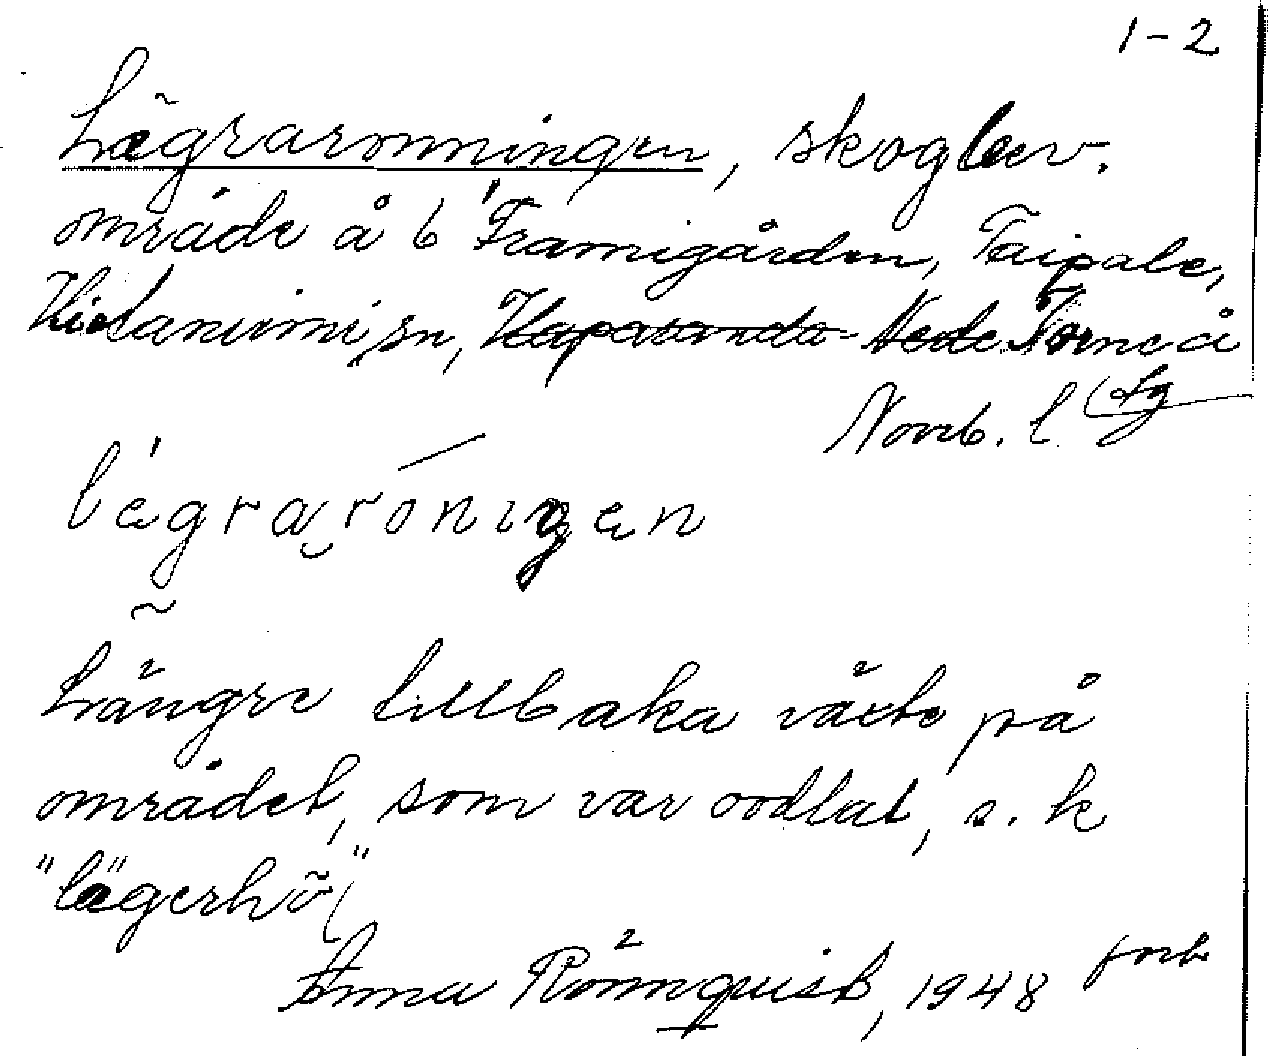 1-2
Lägraronningen, skogbev.
område å 6 Framigården, Taipale,
Hietaniemi sn, Haparanda Neder Torneå
Norrb. l. Lg
lägraróniŋen
Längre tillbaka växte på
området, som var oodlat, s. k
"lägerhö"
Anna Rönnquist, 1948 forts